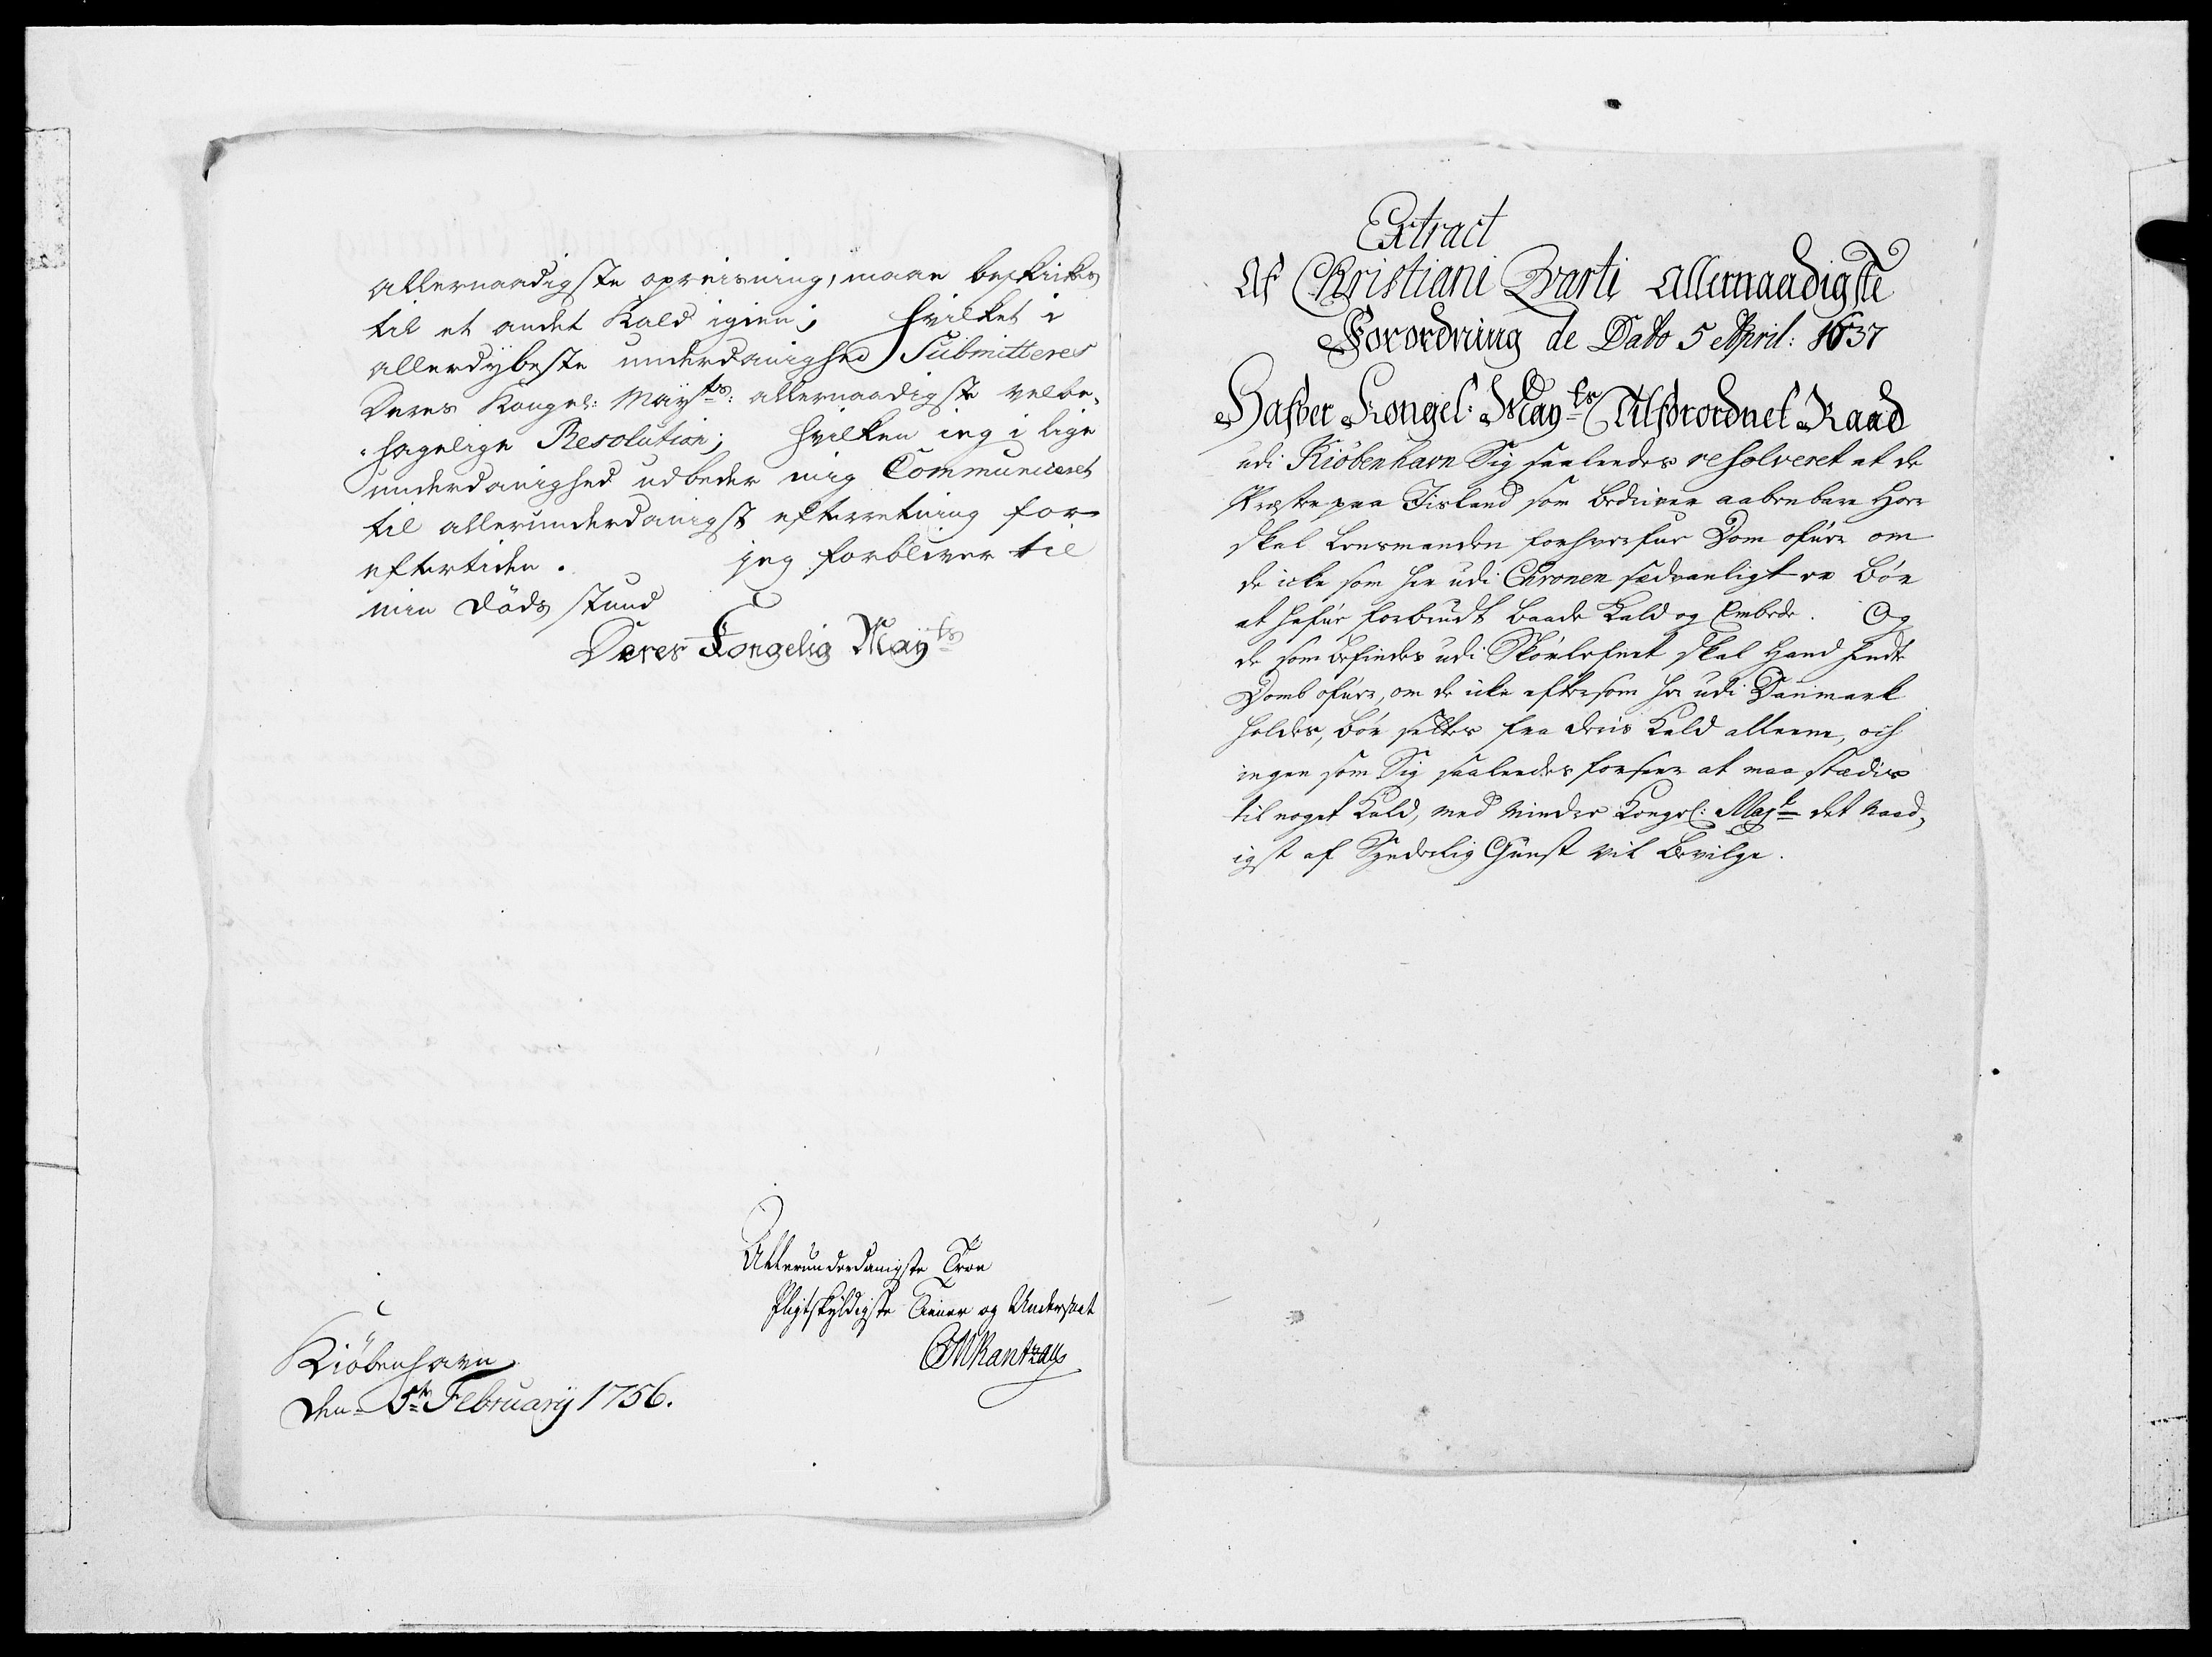 allernaadigste opreisning, maae beskikkes
til et andet Kald igien; hvilket i
allerdybeste underdanighed Submitteres
Deres Kongel: Mayts: allernaadigste velbe-
hagelige Resolution; hvilken ieg i lige
underdanighed udbeder mig Communiceret
til allerunderdanigst efterretning for
eftertiden. jeg forbliver til
min Döds stund
Deres Kongelig Mayts
Allerunderdanigste Troe
Pligtskyldigste Tiener og Undersaat
Rantzau
Kiöbenhavn
den 5te February 1756.
Extract
Af Christiani Qvarti allernaadigste
Forordning de Dato 5 April: 1637
Hafver Kongel: Mayts Tilforordnet Raad
udi Kiöbenhavn Sig saaledes resolveret at de
Præster paa Iisland som bedriver aabenbare Hoer
skal Lensmanden forhverfve Dom ofver om
de icke som her udi Chronen sædvanligt er bör
at hafve forbrudt baade Kald og Embede. Og
de som befindes udi Skörlefnet skal Hand hende
Domb ofver, om de icke eftersom her udi Danmark
holdes, bör settes fra deris Kald alleene, och
ingen som Sig saaledes forseer at maa stædis
til noget Kald, med minder Kongel: Majt det naad-
igst af Synderlig Gunst vil bevilge.